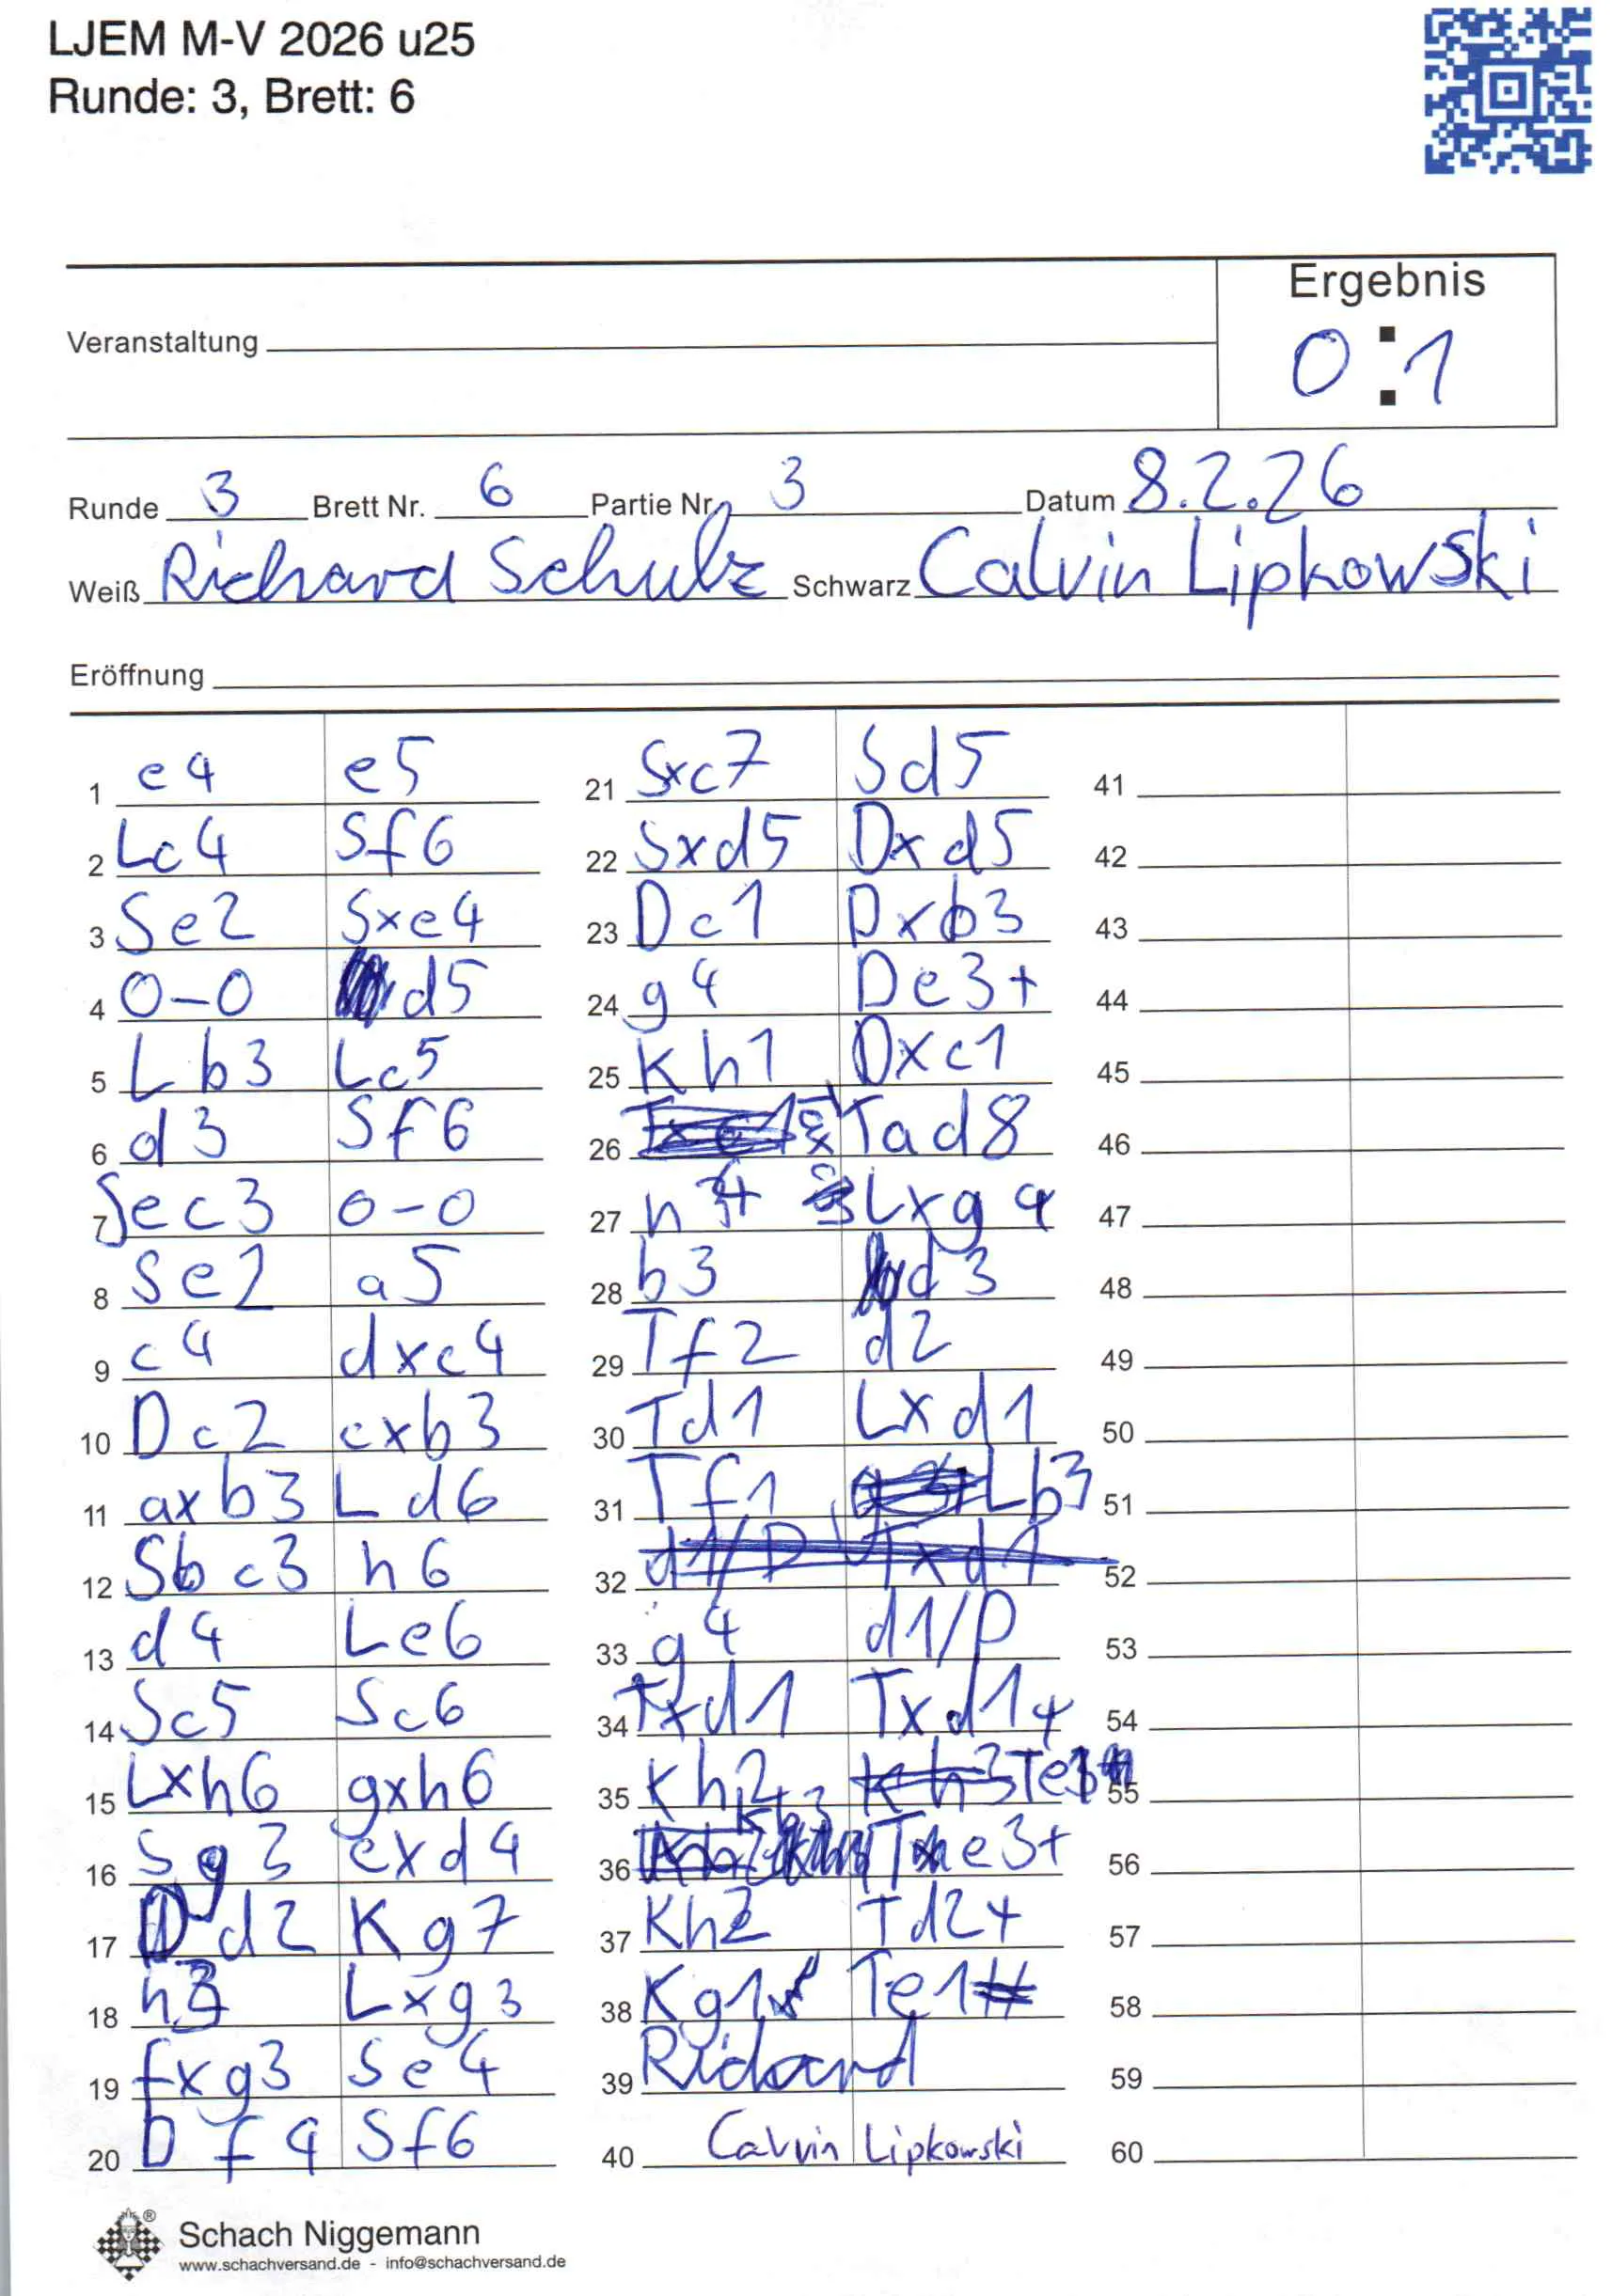 LJEM M-V 2026 u25
Runde: 3, Brett: 6
Ergebnis
Veranstaltung
0:1
Runde 3 Brett Nr. 6 Partie Nr. 3 Datum 8.2.26
Weiß Richard Schulz Schwarz Calvin Lipkowski
Eröffnung
1 e4 e5
2 Lc4 Sf6
3 Se2 Sxe4
4 0-0 d5
5 Lb3 Lc5
6 d3 Sf6
7 Sec3 0-0
8 Se2 a5
9 c4 dxc4
10 Dc2 cxb3
11 axb3 Ld6
12 Sbc3 h6
13 d4 Le6
14 Sc5 Sc6
15 Lxh6 gxh6
16 Sg3 exd4
17 Dd2 Kg7
18 h3 Lxg3
19 fxg3 Se4
20 Df4 Sf6
21 Sxc7 Sd5
22 Sxd5 Dxd5
23 Dc1 Dxb3
24 g4 De3+
25 Kh1 Dxc1
26 Tad8
27 Lxg4
28 b3 d3
29 Tf2 d2
30 Td1 Lxd1
31 Tf1 Lb3
32 d1/D Txd1
33 g4 d1/D
34 Txd1 Txd1+
35 Kh2 Kh3
36 Kh3 e3+
37 Kh2 Td2+
38 Kg1 Te1#
39 Richard
40 Calvin Lipkowski
41
42
43
44
45
46
47
48
49
50
51
52
53
54
55
56
57
58
59
60
Schach Niggemann
www.schachversand.de - info@schachversand.de